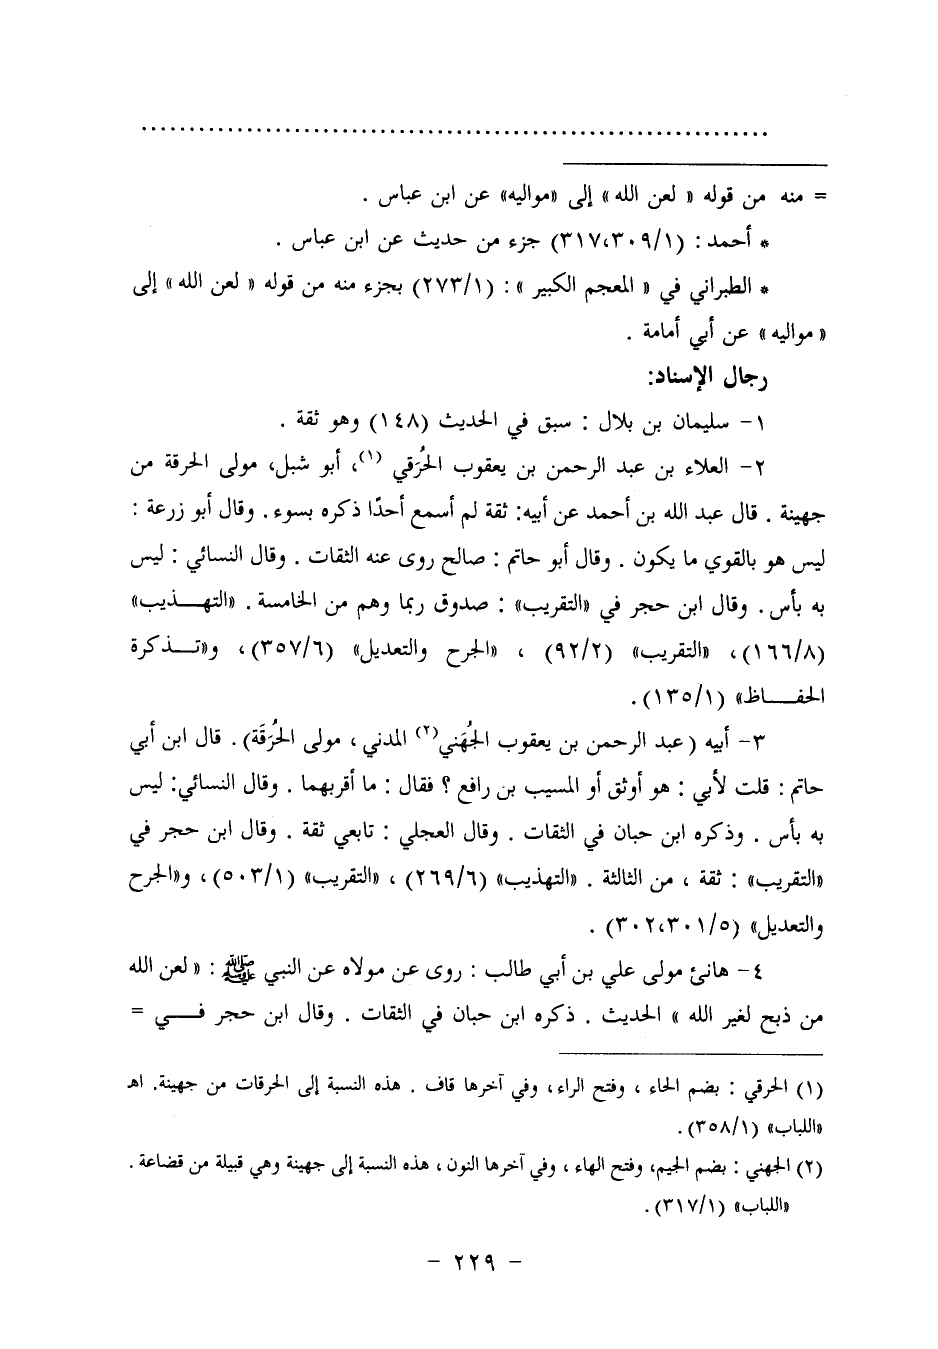 ................................................................
= منه من قوله « لعن الله » إلى «مواليه» عن ابن عباس .
* أحمد : (٣١٧،٣٠٩/١) جزء من حديث عن ابن عباس .
* الطبراني في « المعجم الكبير » : (٢٧٣/١) بجزء منه من قوله « لعن الله » إلى
« مواليه » عن أبي أمامة .
رجال الإسناد:
١- سليمان بن بلال : سبق في الحديث (١٤٨) وهو ثقة .
٢- العلاء بن عبد الرحمن بن يعقوب الحُرَقي (١)، أبو شبل، مولى الحرقة من
جهينة . قال عبد الله بن أحمد عن أبيه: ثقة لم أسمع أحدًا ذكره بسوء. وقال أبو زرعة :
ليس هو بالقوي ما يكون . وقال أبو حاتم : صالح روى عنه الثقات . وقال النسائي : ليس
به بأس. وقال ابن حجر في «التقريب» : صدوق ربما وهم من الخامسة . «التهـــذيب»
(١٦٦/٨)، «التقريب» (٩٢/٢) ، «الجرح والتعديل» (٣٥٧/٦)، و«تـــذكرة
الحفــــاظ» (١٣٥/١).
٣- أبيه ( عبد الرحمن بن يعقوب الجُهَني(٢) المدني ، مولى الحُرَقَة) . قال ابن أبي
حاتم : قلت لأبي : هو أوثق أو المسيب بن رافع ؟ فقال : ما أقربهما . وقال النسائي: ليس
به بأس . وذكره ابن حبان في الثقات . وقال العجلي : تابعي ثقة . وقال ابن حجر في
«التقريب» : ثقة ، من الثالثة . «التهذيب» (٢٦٩/٦) ، «التقريب» (٥٠٣/١)، و«الجرح
والتعديل» (٣٠٢،٣٠١/٥) .
٤- هانئ مولى علي بن أبي طالب : روى عن مولاه عن النبي ﷺ : « لعن الله
من ذبح لغير الله » الحديث . ذكره ابن حبان في الثقات . وقال ابن حجر فــــي =
(١) الحرقي : بضم الحاء ، وفتح الراء، وفي آخرها قاف . هذه النسبة إلى الحرقات من جهينة. اهـ
«اللباب» (٣٥٨/١).
(٢) الجهني : بضم الجيم، وفتح الهاء ، وفي آخرها النون ، هذه النسبة إلى جهينة وهي قبيلة من قضاعة .
«اللباب» (٣١٧/١).
- ٢٢٩ -